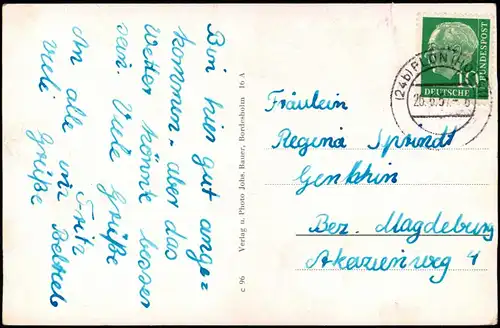 Bin hier gut ange-
kommen, aber das
Wetter könnte besser
sein. Viele Grüße
Fritz
An alle im Betrieb
viele Grüße
c 96 Verlag u. Photo Johs. Bauer, Bordesholm 16 A
Fräulein
Regina Sprindt
Genthin
Bez. Magdeburg
Akazienweg 4
(24b) PLÖN
10
DEUTSCHE
BUNDESPOST